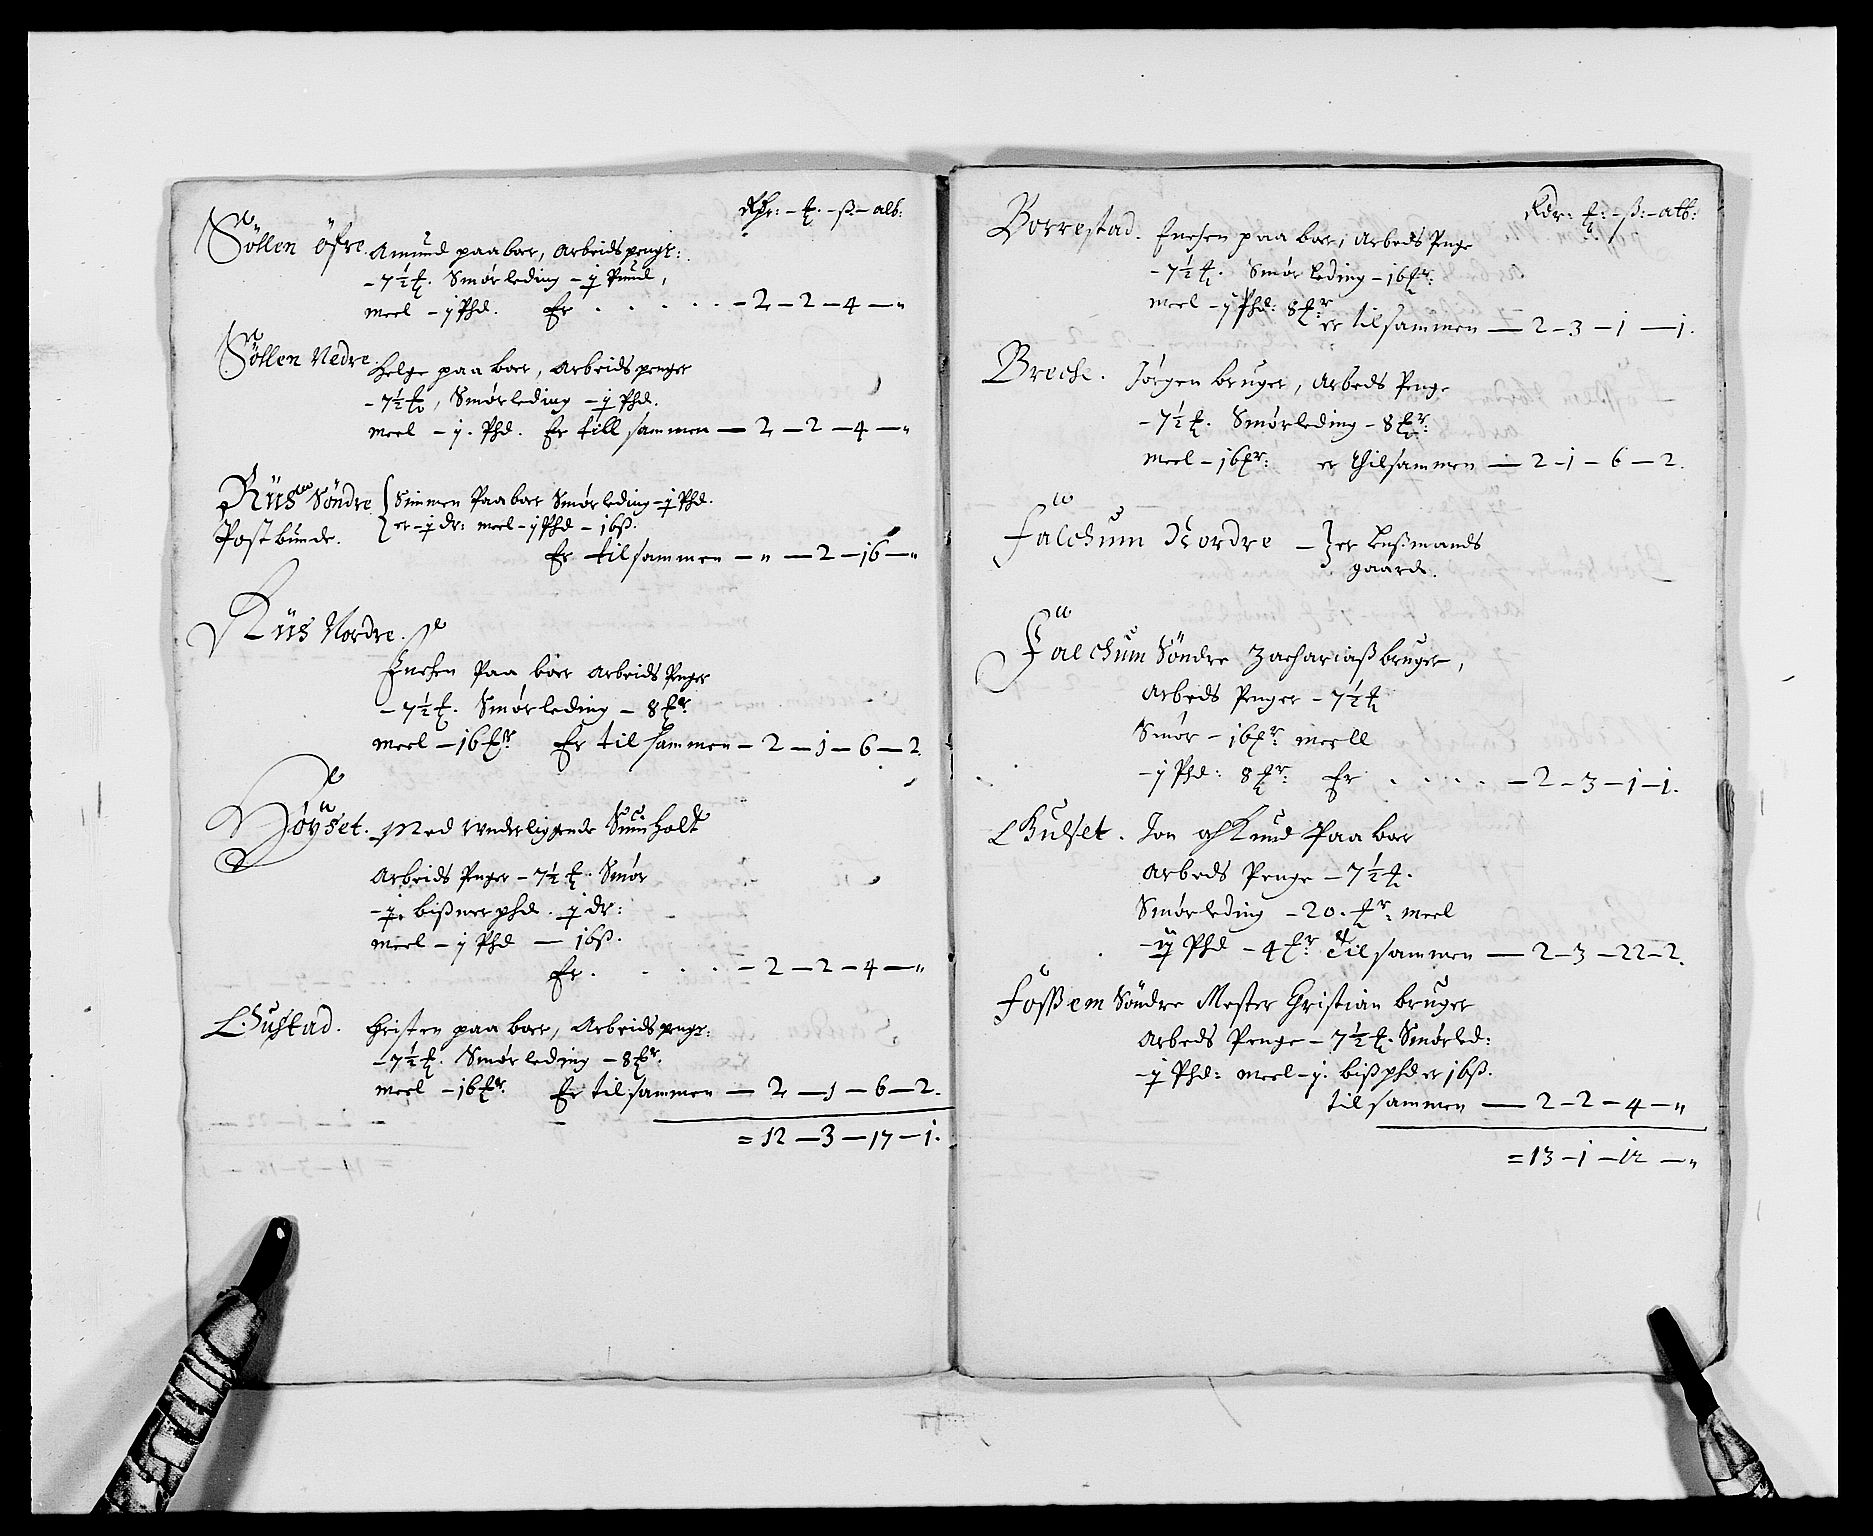 Rdr: – ℔. – ß – alb:
Söllen öfre. Amund paaboer, Arbeidspenge:
– 7½ ℔. Smörleding – j Pund,
meel – j Phd. Er . . . . . – 2 – 2 – 4 – „
Söllen Nedre. Helge paa boer, Arbeidspenger
– 7½ ℔, Smörleding – j Phd.
meel – j. Phd. Er till sammen — 2 – 2 – 4 – „
Riis Söndre { Simmen Paaboer Smörleding – j Phd.
Postbunde. { er – j dr: meel – j Phd – 16 ß.
Er tilsammen – „ — 2 – 16 – „
Riis Nordre.
Enchen Paa boer Arbeids Penger
– 7½ ℔. Smörleding – 8 ℔r
meel – 16 ℔r Er til sammen – 2 – 1 – 6 – 2.
Höyset. Med underliggende
Arbeids Penger – 7½ ℔ Smör
– j. bißmerphd. j dr:
meel – j Phd — 16 ß.
Er . . . . – 2 – 2 – 4 – „
Christen paa boer, Arbeidspenge:
– 7½ ℔. Smörleding – 8 ℔r.
meel – 16 ℔r. Er tilsammen — 2 – 1 – 6 – 2.
= 12 – 3 – 17 – 1.
Rdr: ℔: – ß: – alb:
Borrestad. Enchen paa boer, Arbeds Penge
– 7½ ℔. Smör leding – 16 ℔r.
meel – j Phd: 8 ℔r er tilsammen — 2 – 3 – 1 — 1.
Breche. Jörgen bruger, Arbeds Penge
– 7½ ℔. Smörleding – 8 ℔r.
meel – 16 ℔r: er thilsammen — 2 – 1 – 6 – 2.
Falchum Nordre – } er Lenßmands
gaard.
Falchum Söndre Zachariaß bruger,
Arbeds Penger – 7½ ℔
Smör – 16 ℔r. meell
– j Phd: 8 ℔r. Er . . . . – 2 – 3 – 1 – 1.
Jon och Knud Paa boer
Arbeds Penge – 7½ ℔.
Smörleding – 20. ℔r. meel
Phd – 4 ℔r til sammen — 2 – 3 – 22 – 2.
Foßem Söndre Mester Christian bruger
Arbeds Penge – 7½ ℔. Smörled:
– j Phd: meel – j. bißphd er 16 ß.
til sammen — 2 – 2 – 4 – „
= 13 – 1 – 12 – „